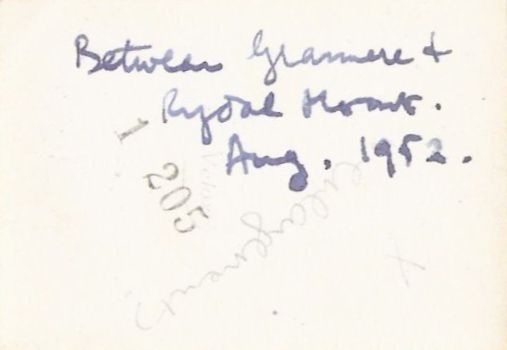 Between Grasmere +
Rydal Mount.
Aug. 1952.
1 205
enlargement
x